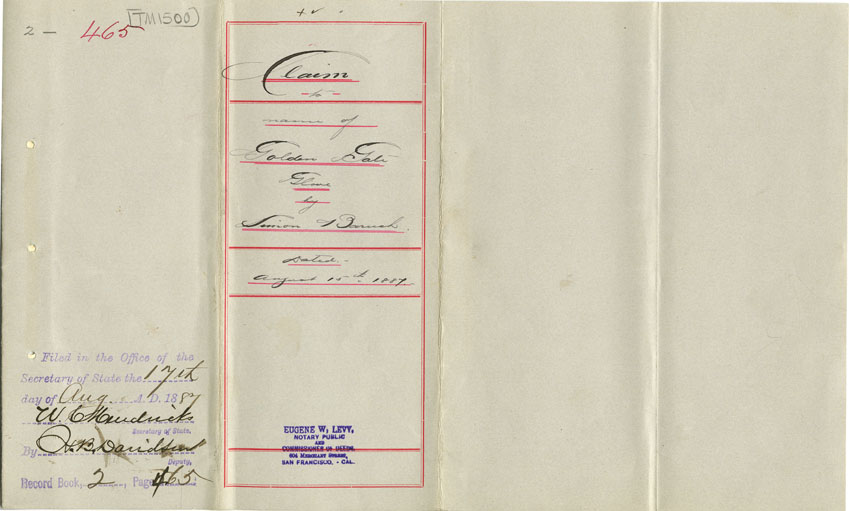 2 - 465 [TM1500]
Claim
to
name of
Golden Gate
Glove
by
Simon Baruch.
Dated -
August 15th 1887
Filed in the Office of the
Secretary of State the 17th
day of Aug A. D. 1887
W. C. Hendricks
Secretary of State.
By J. B. Davidson
Deputy.
Record Book, 2, Page 465
EUGENE W. LEVY,
NOTARY PUBLIC
AND
COMMISSIONER OF DEEDS,
MERCHANT STREET,
SAN FRANCISCO, - CAL.